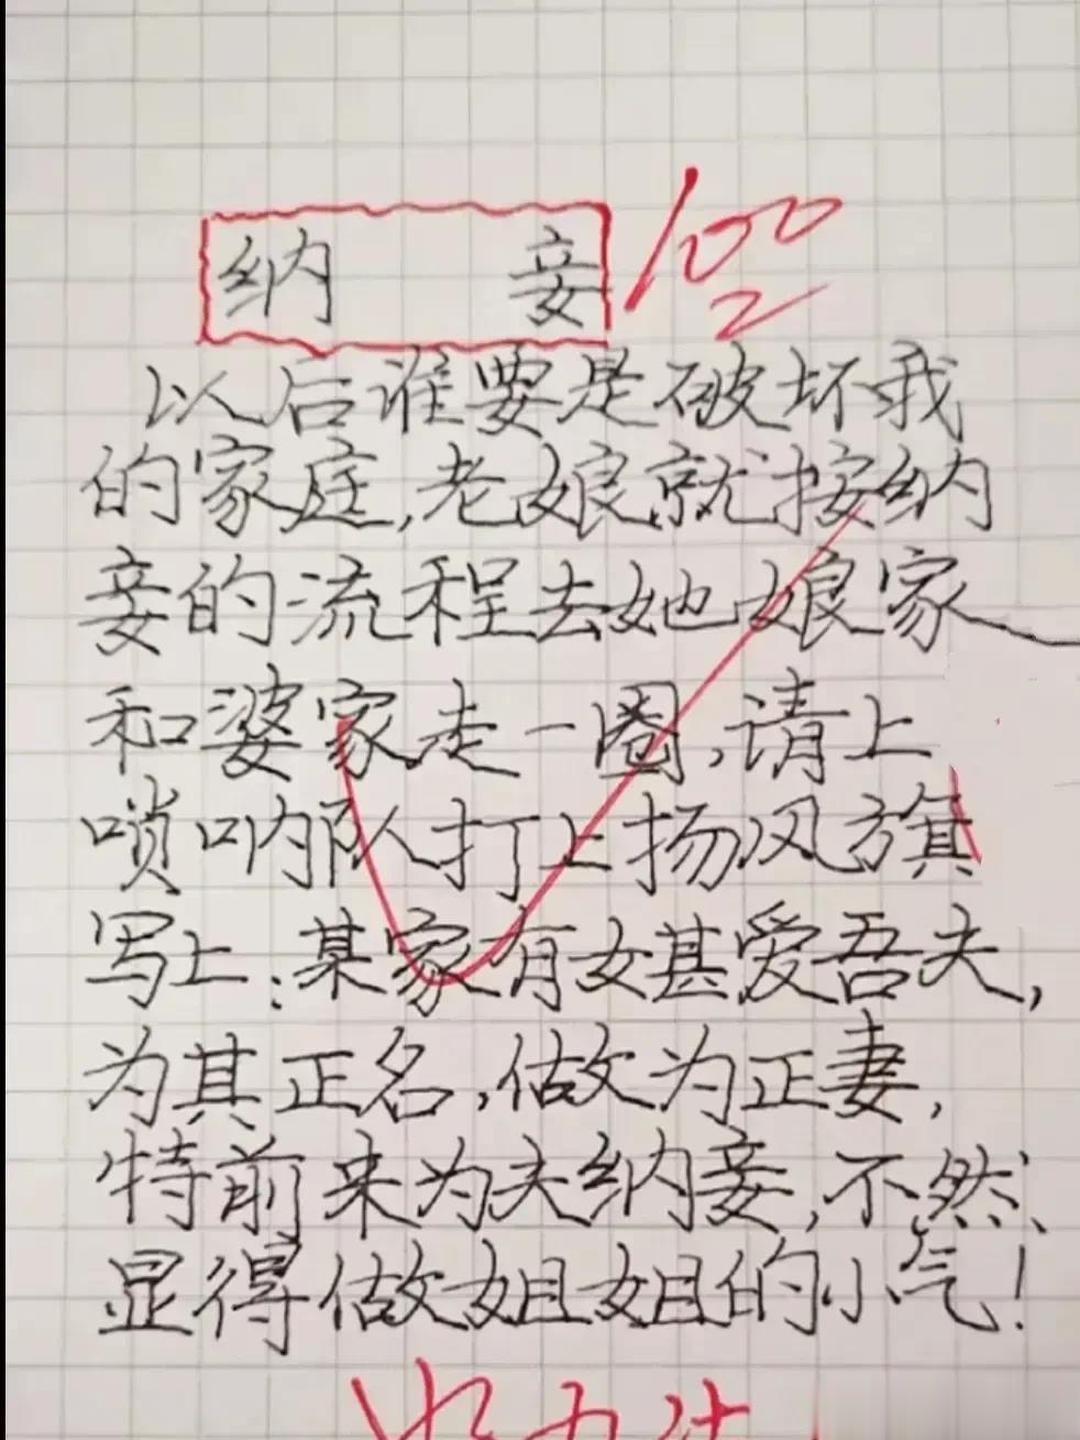 纳 妾
100
以后谁要是破坏我
的家庭,老娘就按纳
妾的流程去她娘家
和婆家走一圈,请上
唢呐队打上扬风旗
写上:某家有女甚爱吾夫,
为其正名,做为正妻,
特前来为夫纳妾,不然、
显得做姐姐的小气!